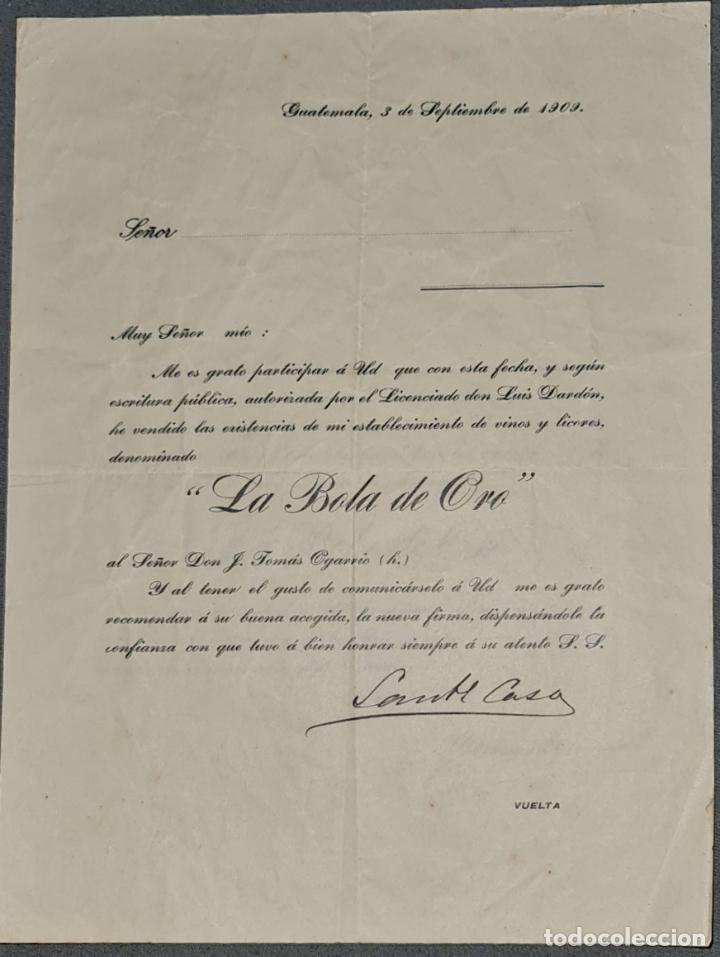 Guatemala, 3 de Septiembre de 1909.
Señor
Muy Señor mío:
Me es grato participar á Ud que con esta fecha, y según
escritura pública, autorizada por el Licenciado don Luis Dardón,
he vendido las existencias de mi establecimiento de vinos y licores,
denominado
“La Bola de Oro”
al Señor Don J. Tomás Ogarrio (h.)
Y al tener el gusto de comunicárselo á Ud me es grato
recomendar á su buena acogida, la nueva firma, dispensándole la
confianza con que tuvo á bien honrar siempre á su atento S. S.
VUELTA
todocoleccion